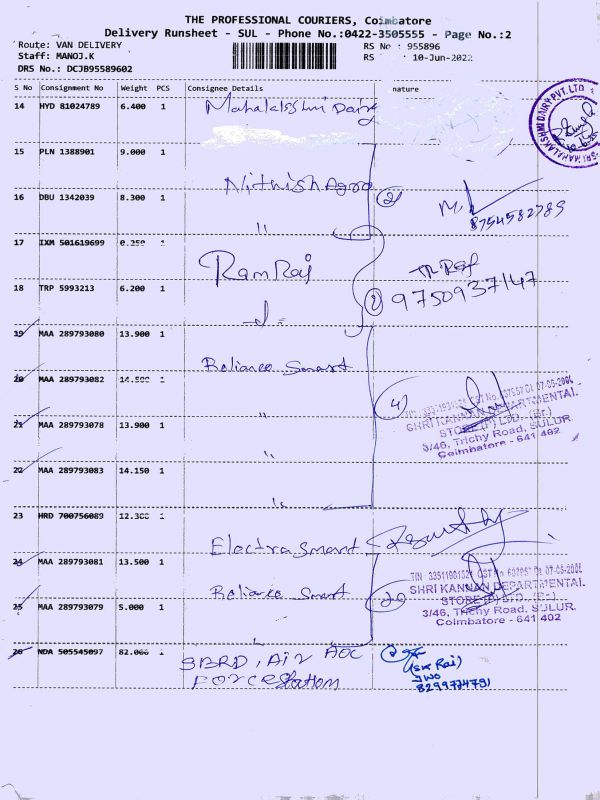 THE PROFESSIONAL COURIERS, Coimbatore
Delivery Runsheet - SUL - Phone No.:0422-3505555 - Page No.:2
Route: VAN DELIVERY
RS No : 955896
Staff: MANOJ.K
RS : 10-Jun-2022
DRS No.: DCJB95589602
S No Consignment No Weight PCS Consignee Details nature
14 HYD 81024789 6.400 1 Mahalakshmi Dairy
SRI MAHALAKSHMI DAIRY PVT. LTD
15 PLN 1388901 9.000 1
Nithish Agro
2
16 DBU 1342039 8.300 1
M.
8754582789
"
17 IXM 501619699 0.250 1
RamRaj
18 TRP 5993213 6.200 1
2 9750937147
19 MAA 289793080 13.900 1
Reliance Smart
20 MAA 289793082 14.500 1
"
4
SHRI KANNAN DEPARTMENTAL
STORE (P) LTD. (Br.)
3/46, Trichy Road, SULUR.
Coimbatore - 641 402
21 MAA 289793078 13.900 1
"
22 MAA 289793083 14.150 1
"
23 HRD 700756089 12.300 1
Electra Smart
24 MAA 289793081 13.500 1
Reliance Smart
2
SHRI KANNAN DEPARTMENTAL
STORE (P) LTD. (Br.)
3/46, Trichy Road, SULUR.
Coimbatore - 641 402
25 MAA 289793079 5.000 1
"
26 NDA 505545097 82.000 1
BRD, Air
Force Station
(SK Rai)
JWO